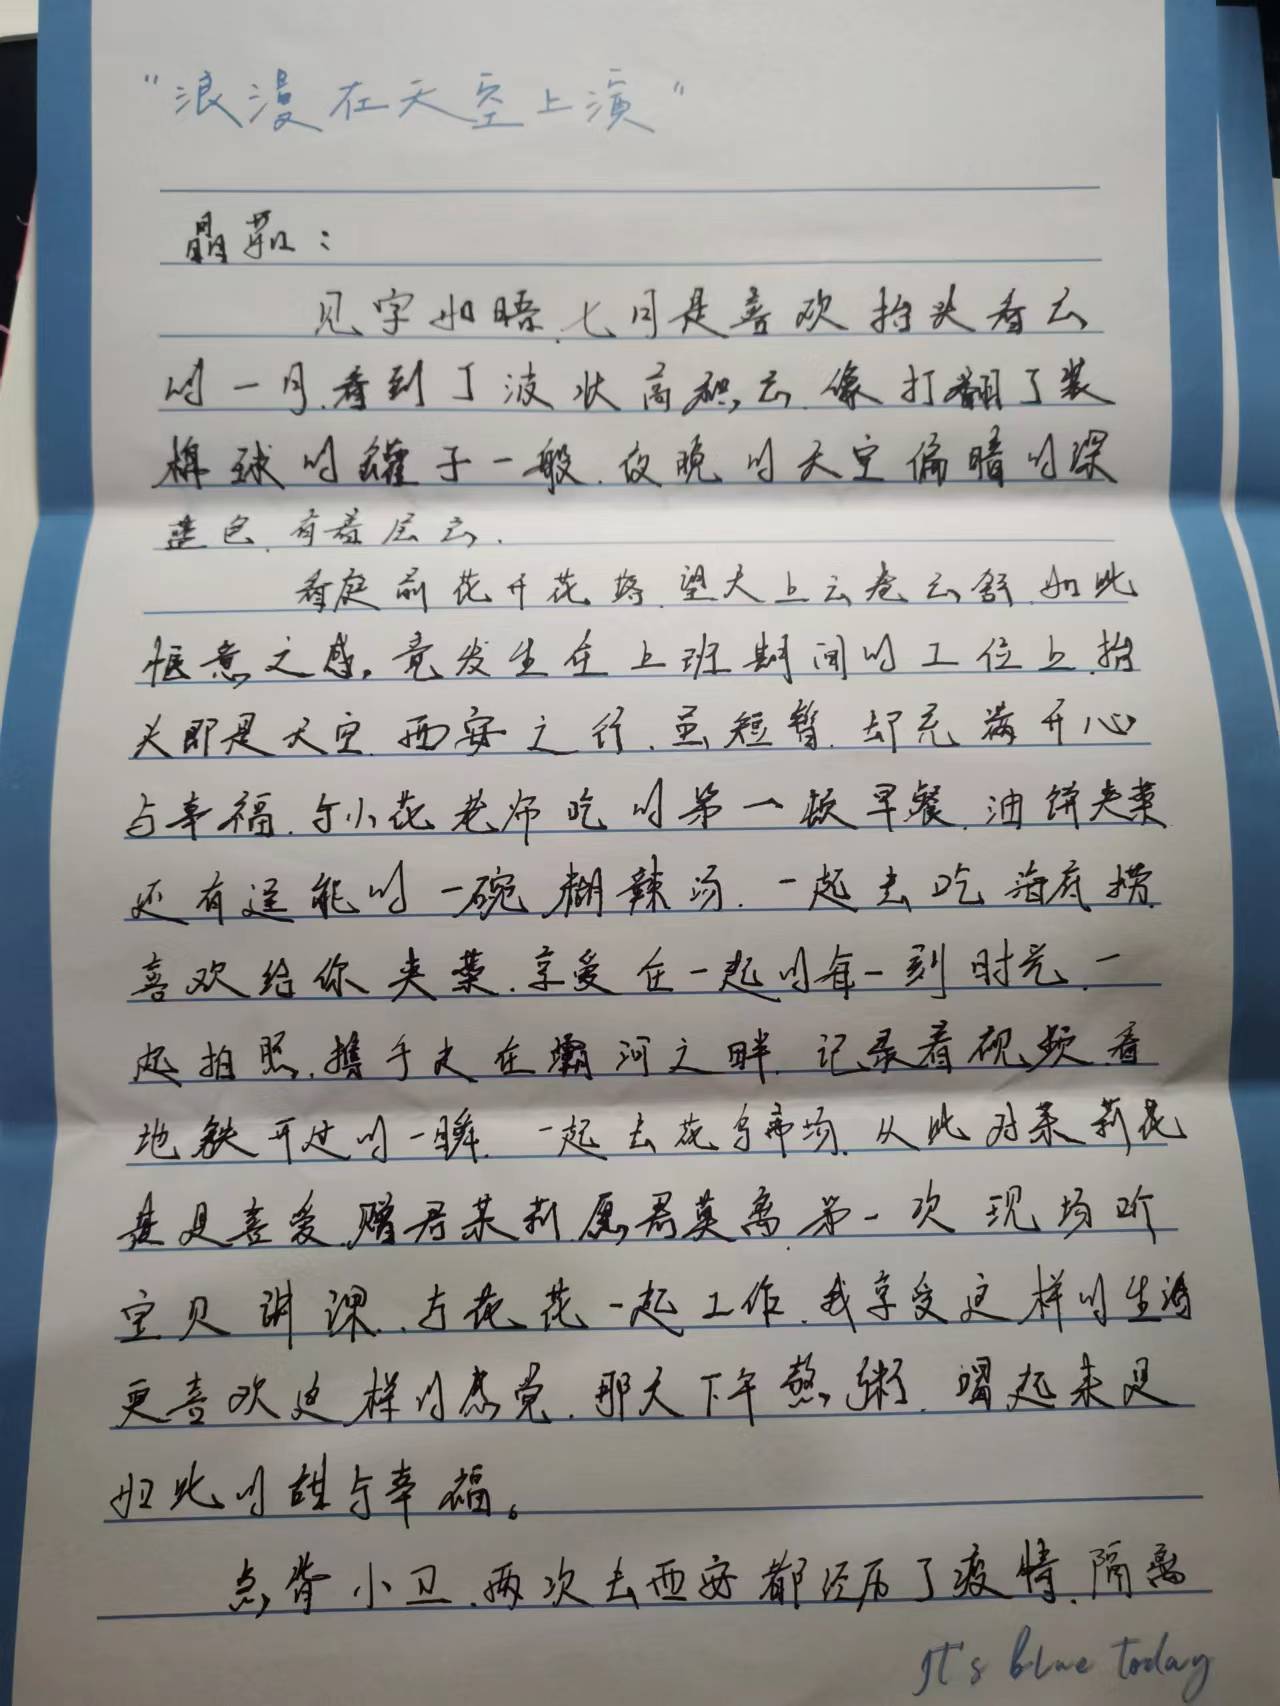 "浪漫在天空上演"
见字如晤.七月是喜欢抬头看云
的一月.看到了波状高积云.像打翻了装
棉球的罐子一般.夜晚的天空偏暗的深
蓝色.有着层云.
看庭前花开花落.望天上云卷云舒.如此
惬意之感,竟发生在上班期间的工位上.抬
头即是天空.西安之行.虽短暂.却充满开心
与幸福.与小花老师吃的第一顿早餐.油饼夹菜
还有逞能的一碗糊辣汤.一起去吃海底捞.
喜欢给你夹菜.享受在一起的每一刻时光.一
起拍照.携手走在灞河之畔.记录着视频.看
地铁开过的一瞬.一起去花鸟市场.从此对茉莉花
甚是喜爱.赠君茉莉.愿君莫离.第一次现场听
宝贝讲课.与花花一起工作.我享受这样的生活
更喜欢这样的感觉.那天下午熬粥.嘴起来是
如此的甜与幸福。
点背小卫.两次去西安都经历了疫情.隔离
It's blue today